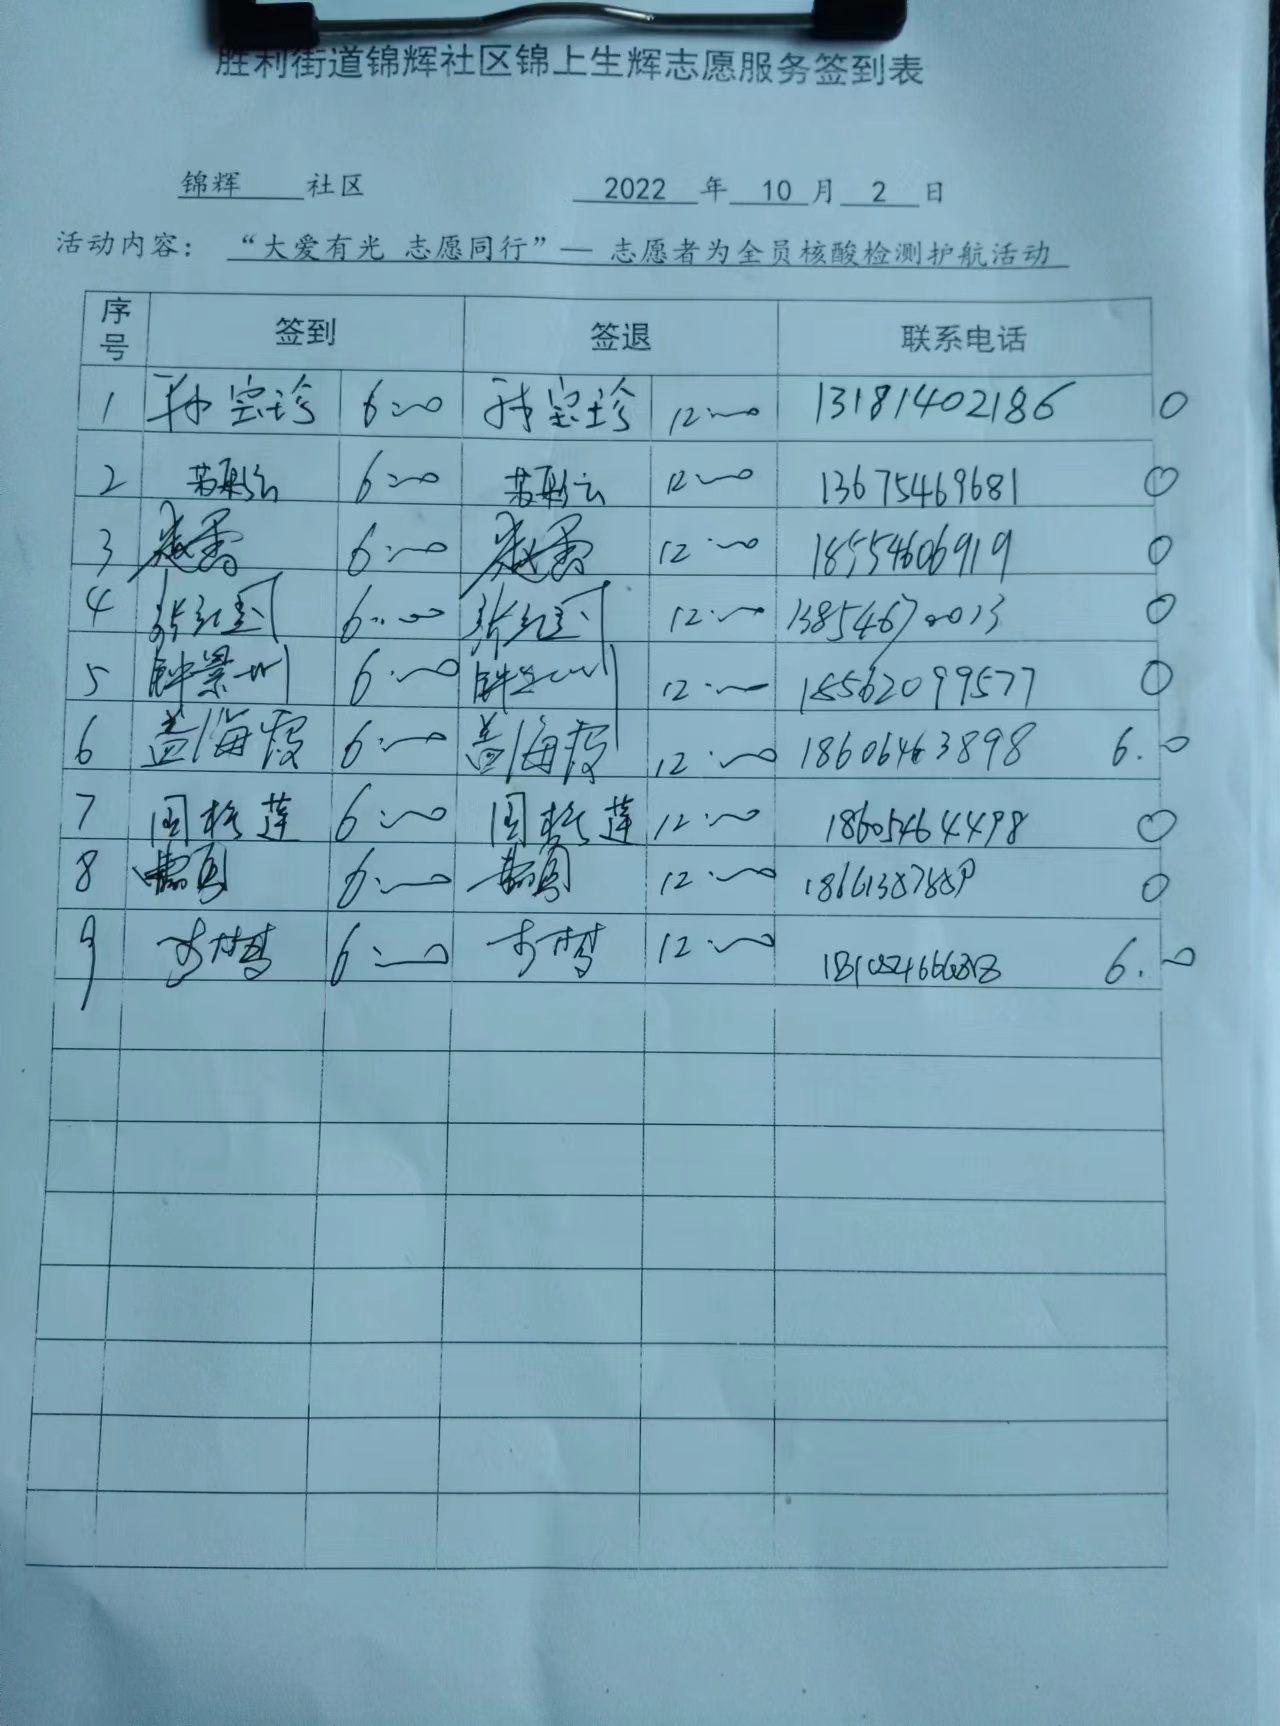 胜利街道锦辉社区锦上生辉志愿服务签到表
锦辉 社区 2022 年 10 月 2 日
活动内容： “大爱有光 志愿同行”— 志愿者为全员核酸检测护航活动
序号 签到 签退 联系电话
1 孙宝珍 6:00 孙宝珍 12:00 13181402186 0
2 苏彩云 6:00 苏彩云 12:00 13675469681 0
3 6:00 12:00 18554606919 0
4 张红国 6:00 张红国 12:00 13854670013 0
5 钟景州 6:00 12:00 18562099577 0
6 盖海霞 6:00 盖海霞 12:00 18606463898 6.0
7 周格莲 6:00 周格莲 12:00 18605464498 0
8 6:00 12:00 0
9 6:00 12:00 6.0